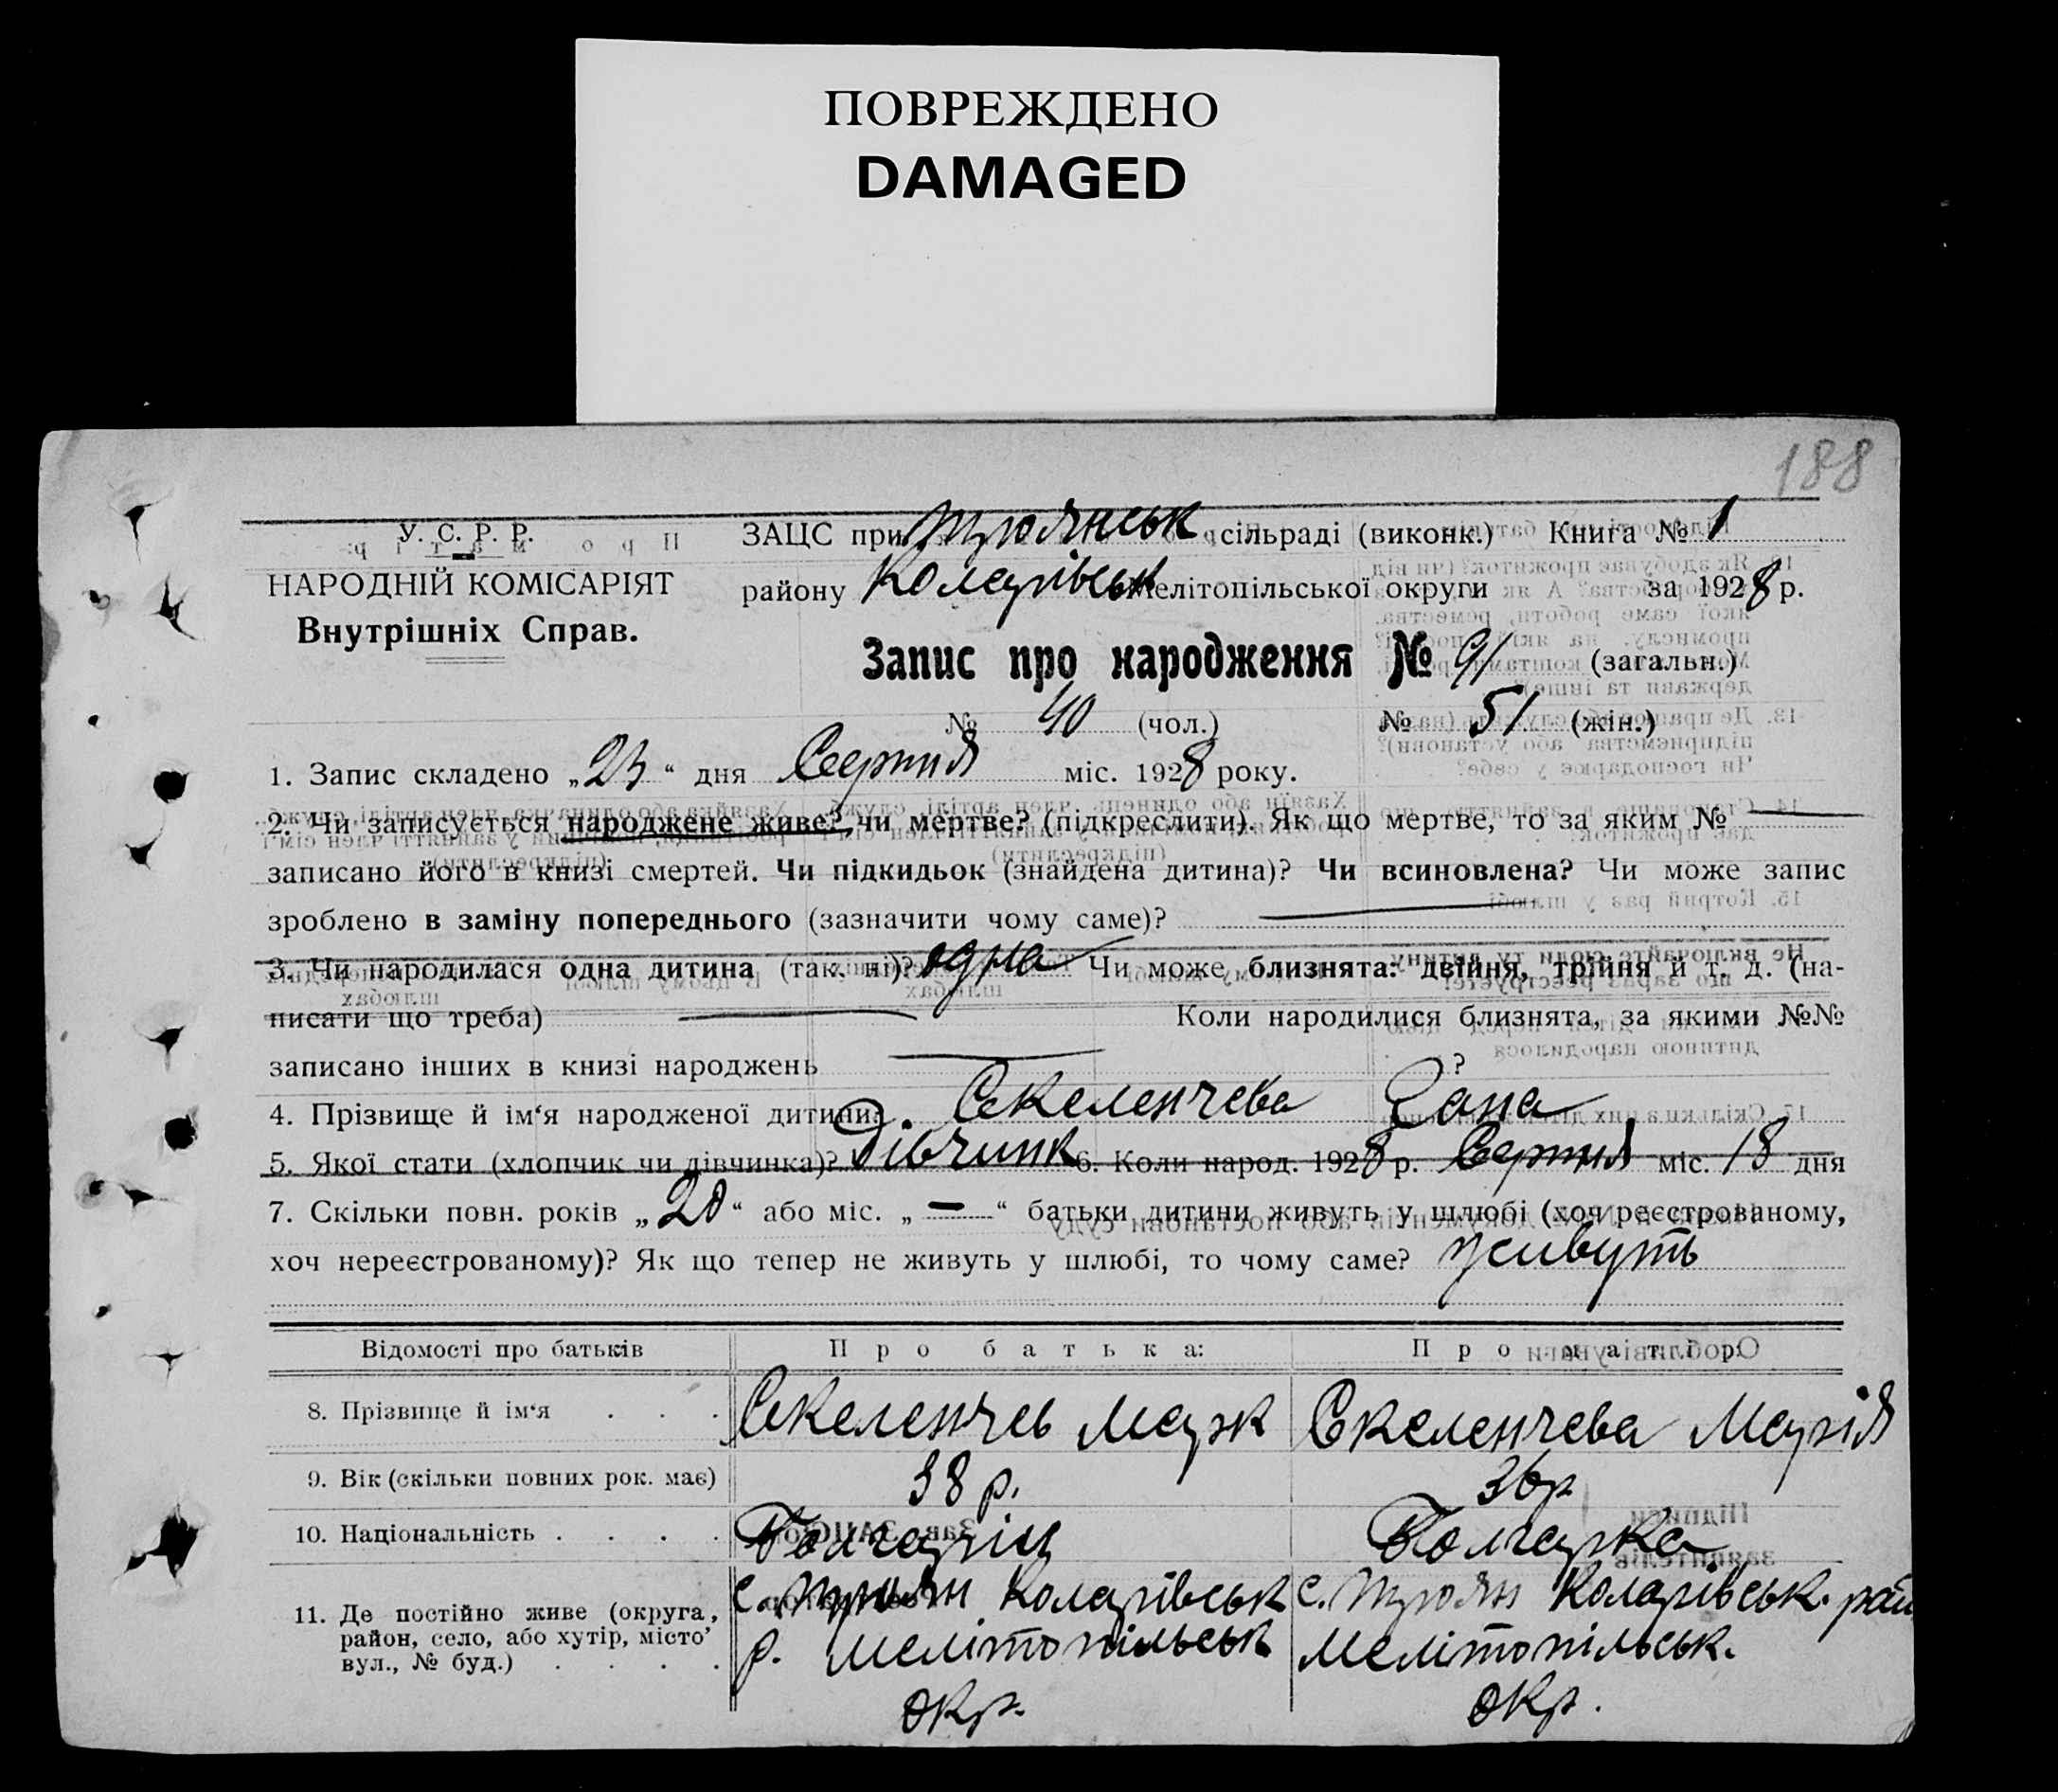 ПОВРЕЖДЕНО
DAMAGED
188
У. С. Р. Р.
НАРОДНІЙ КОМІСАРІЯТ
Внутрішніх Справ.
ЗАЦС при Троянськ сільраді (виконк.) Книга № 1
району Коларівськ Мелітопільської округи за 1928 р.
Запис про народження № 91 (загальн.)
№ 40 (чол.) № 51 (жін.)
1. Запис складено „23“ дня Серпня міс. 1928 року.
2. Чи записується народжене живе? чи мертве? (підкреслити). Як що мертве, то за яким №
записано його в книзі смертей. Чи підкидьок (знайдена дитина)? Чи всиновлена? Чи може запис
зроблено в заміну попереднього (зазначити чому саме)?
3. Чи народилася одна дитина (так, ні)? одна Чи може близнята: двійня, трійня й т. д. (на-
писати що треба) Коли народилися близнята, за якими №№
записано інших в книзі народжень ?
4. Прізвище й ім‘я народженої дитини: Скеленчева
5. Якої стати (хлопчик чи дівчинка)? Дівчинк 6. Коли народ. 1928 р. Серпня міс. 18 дня
7. Скільки повн. років „20“ або міс. „—“ батьки дитини живуть у шлюбі (хоч реєстрованому,
хоч нереєстрованому)? Як що тепер не живуть у шлюбі, то чому саме? живуть
Відомості про батьків Про батька: Про матір:
8. Прізвище й ім‘я . . . Скеленчев Марк Скеленчева Марія
9. Вік (скільки повних рок. має) 38 р. 36 р
10. Національність . . . . Болгарін Болгарка
11. Де постійно живе (округа, район, село, або хутір, місто’ вул., № буд.) . . . .
с. Троян Коларівськ р. Мелітопільськ окр.
с. Троян Коларівськ. рай Мелітопільськ. окр.